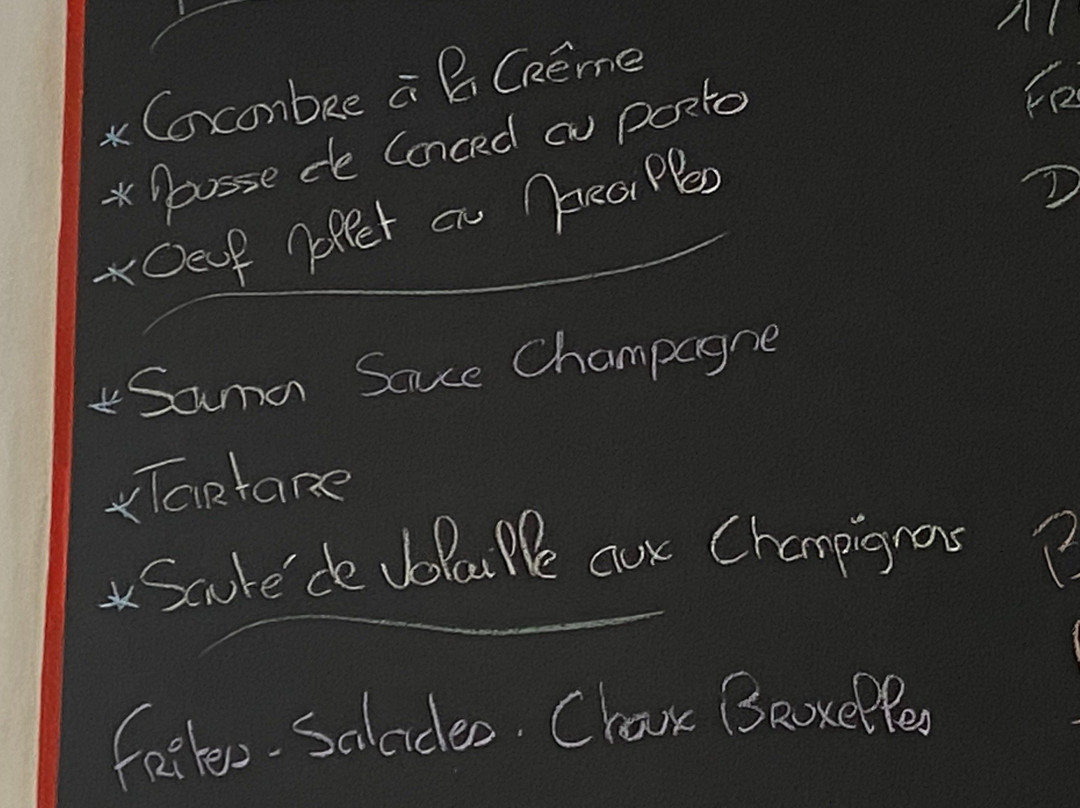 * Concombre à la Crême
* Mousse de Canard au porto
* Oeuf Mollet au Maroilles
* Saumon Sauce Champagne
* Tartare
* Sauté de Volaille aux Champignons
Frites - Salades . Choux Bruxelles